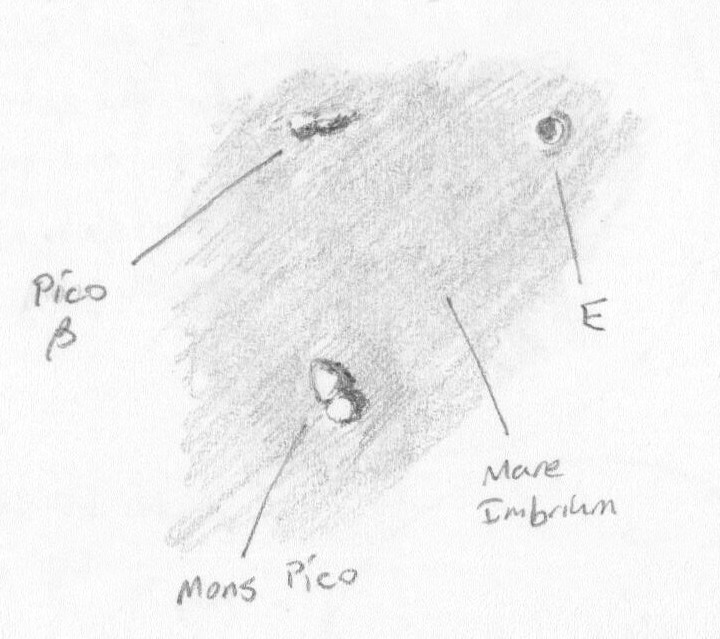 Pico
β
E
Mare
Imbrium
Mons Pico